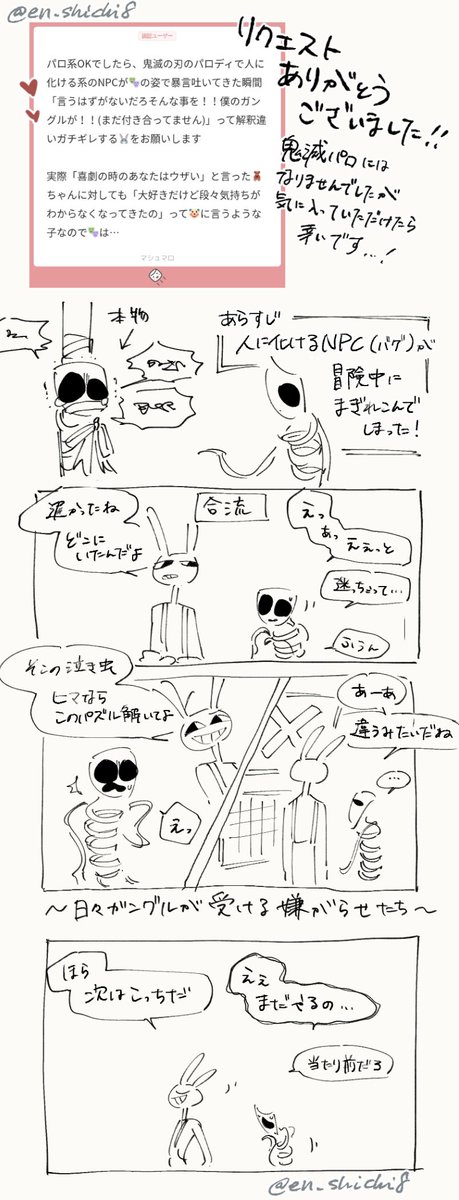 @en_shichi8
認証ユーザー
パロ系OKでしたら、鬼滅の刃のパロディで人に
化ける系のNPCが🎭の姿で暴言吐いてきた瞬間
「言うはずがないだろそんな事を！！僕のガン
グルが！！(まだ付き合ってません)」って解釈違
いガチギレする🐰をお願いします
実際「喜劇の時のあなたはウザい」と言った🧸
ちゃんに対しても「大好きだけど段々気持ちが
わからなくなってきたの」って🤡に言うような
子なので🎭は…
マシュマロ
リクエスト
ありがとう
ございました!!
鬼滅パロには
なりませんでしたが
気に入っていただけたら
幸いです…!
本物
あらすじ
人に化けるNPC(バグ)が
冒険中に
まぎれこんで
しまった!
遅かったね
どこに
いたんだよ
合流
えっ
あっ ええっと
迷っちゃって…
ふうん
そこの泣き虫
ヒマなら
このパズル解いてよ
えっ
あーあ
違うみたいだね
…
～日々ガングルが受ける嫌がらせたち～
ほら
次はこっちだ
ええ
まだやるの…
当たり前だろ
@en_shichi8